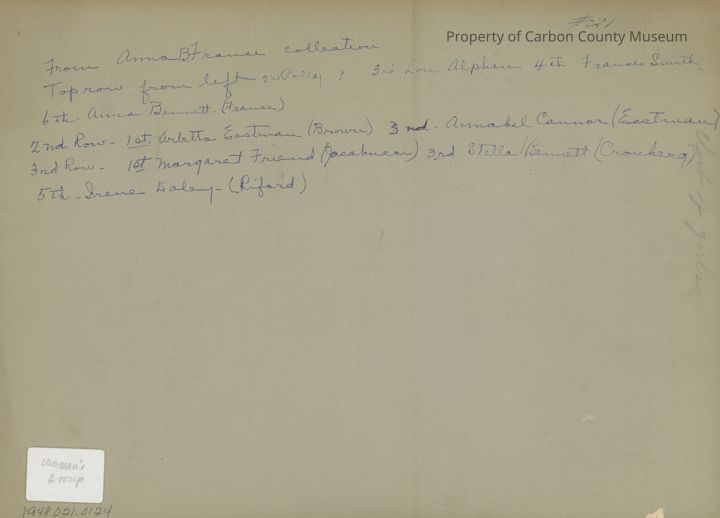 #21
Property of Carbon County Museum
From Anna B France collection
Top row from left 2nd Polly ? 3rd Lou Alphin 4th Frances Smith
6th Anna Bennett (France)
2nd Row - 1st. Arletta Eastman (Brown) 3rd. Annabel Connor (Eastman)
3rd Row - 1st Margaret Friend (Jacobucci) 3rd Stella Bennett (Cronberg)
5th - Irene Daley - (Riford)
Women's
Group
1948.021.0124